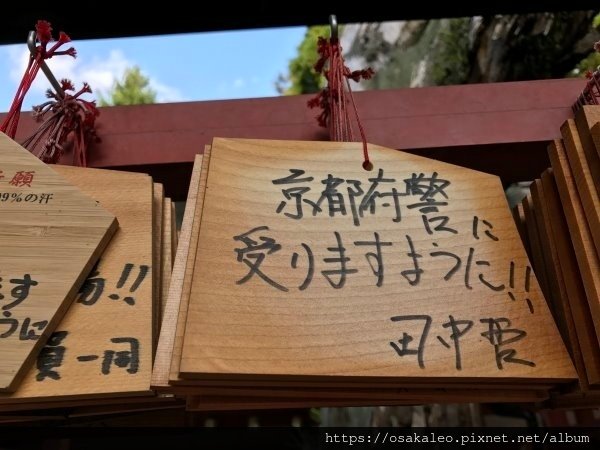 京都府警に
受りますように!!
田中哲
願
99%の汗
ます
うに
!!
員一同
https://osakaleo.pixnet.net/album